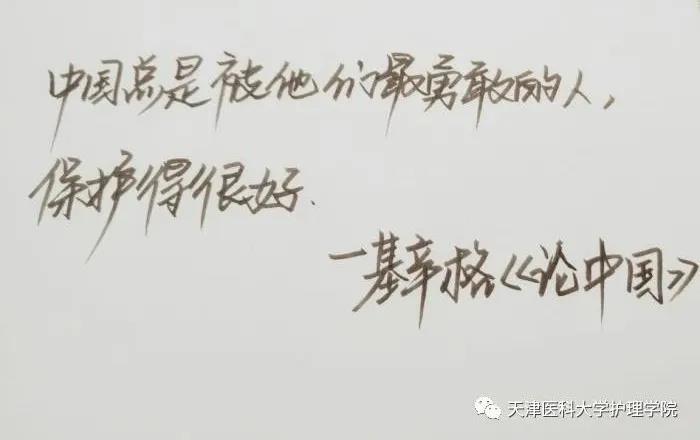 中国总是被他们最勇敢的人,
保护得很好.
一基辛格《论中国》
天津医科大学护理学院